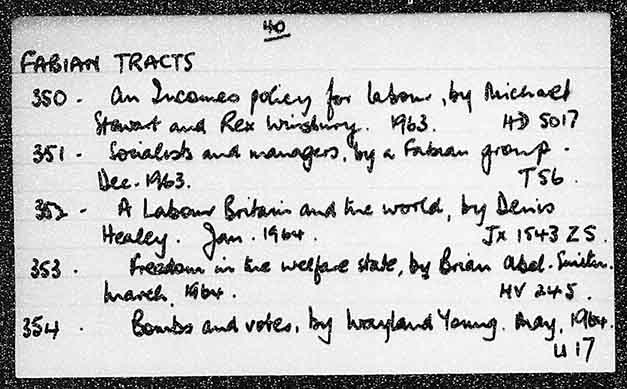 40
FABIAN TRACTS
350 - An Incomes policy for labour, by Michael
Stewart and Rex Winsbury. 1963. HD 5017
351 - Socialists and managers, by a Fabian group.
Dec. 1963. T56.
352 - A Labour Britain and the world, by Denis
Healey. Jan. 1964. JX 1543 Z5.
353 - Freedom in the welfare state, by Brian Abel-Smith.
March, 1964. HV 245.
354 - Bombs and votes, by Wayland Young. May, 1964.
U 17